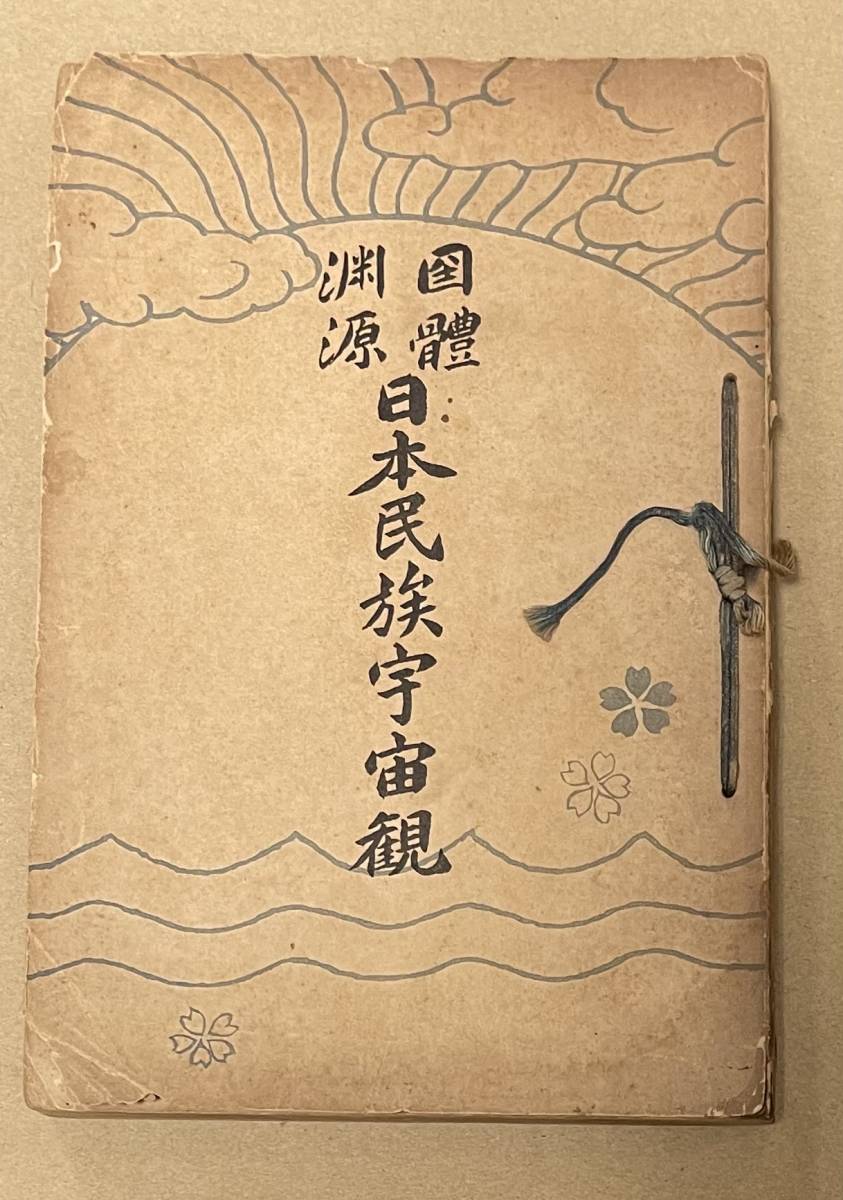 国體
渊源
日本民族宇宙観